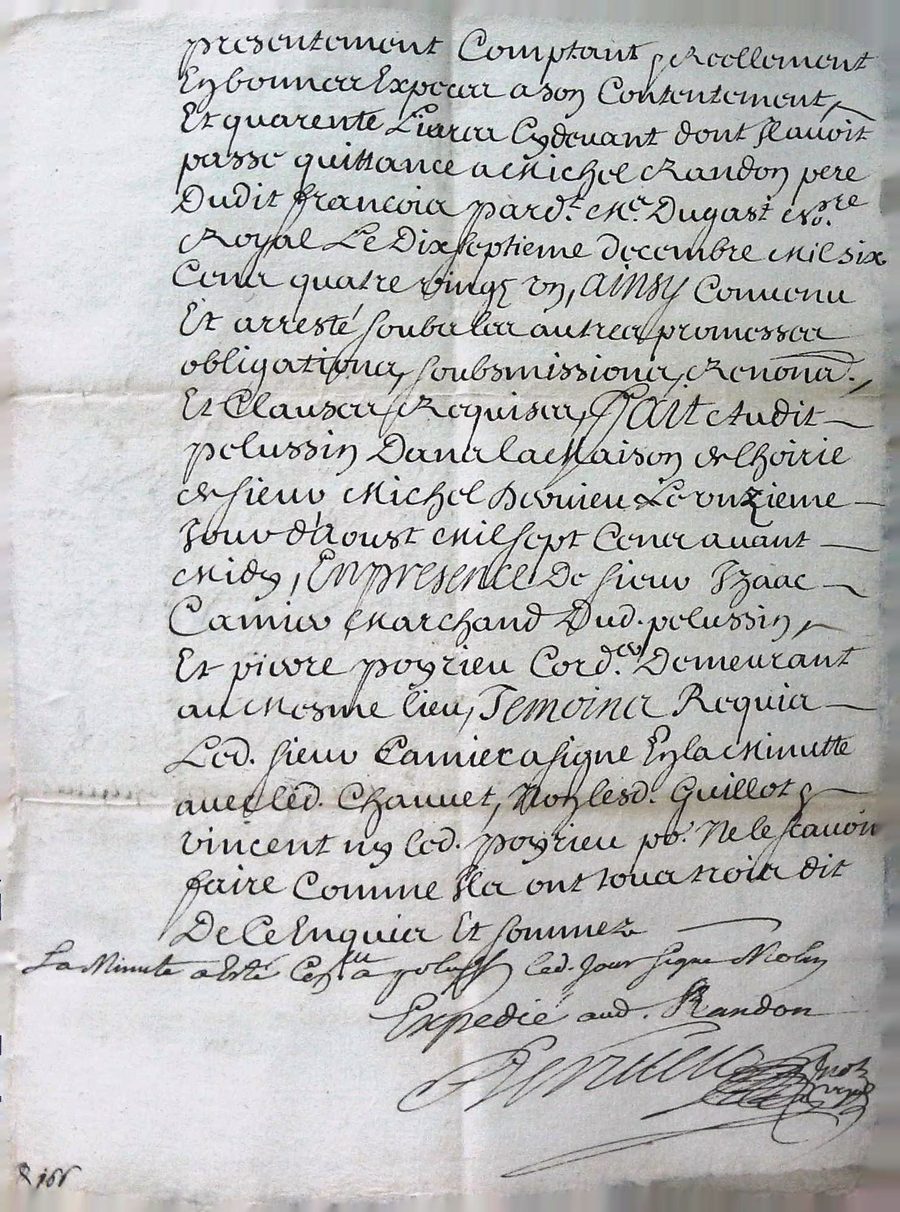 presentement Comptant, Reellement
En bonnes Expeces a son Contentement,
Et quarente Livres Cydevant dont Il avoit
passé quittance a Michel Randon pere
Dudit francois pard.t Me. Dugast No.re
Royal Le Dix septieme decembre Mil six
Cens quatre vingt un, Ainsy Convenu
Et arresté soubs les autres promesses
obligations, soubsmissions, Renon.ns,
Et Clauses Requises, Fait Audit
pelussin Dans la Maison de lhoirie
de sieur Michel Dervieu Le onzieme
Jour d'Aoust Mil sept Cens avant
Midy, En presence De sieur Izaac
Camier Marchand Dud. pelussin,
Et pierre poyrieu Cord.er Demeurant
au Mesme lieu, Temoins Requis
Led. sieur Camier a signé En la Minutte
avec led. Chauvet, Non lesd. Guillot &
vincent ny led. poyrieu po.r Ne le scavoir
faire Comme Ils ont tous trois dit
De Ce Enquis Et sommez
La Minute a Esté a led. Jour signe Molin
Expedié aud. Randon
Dervieu